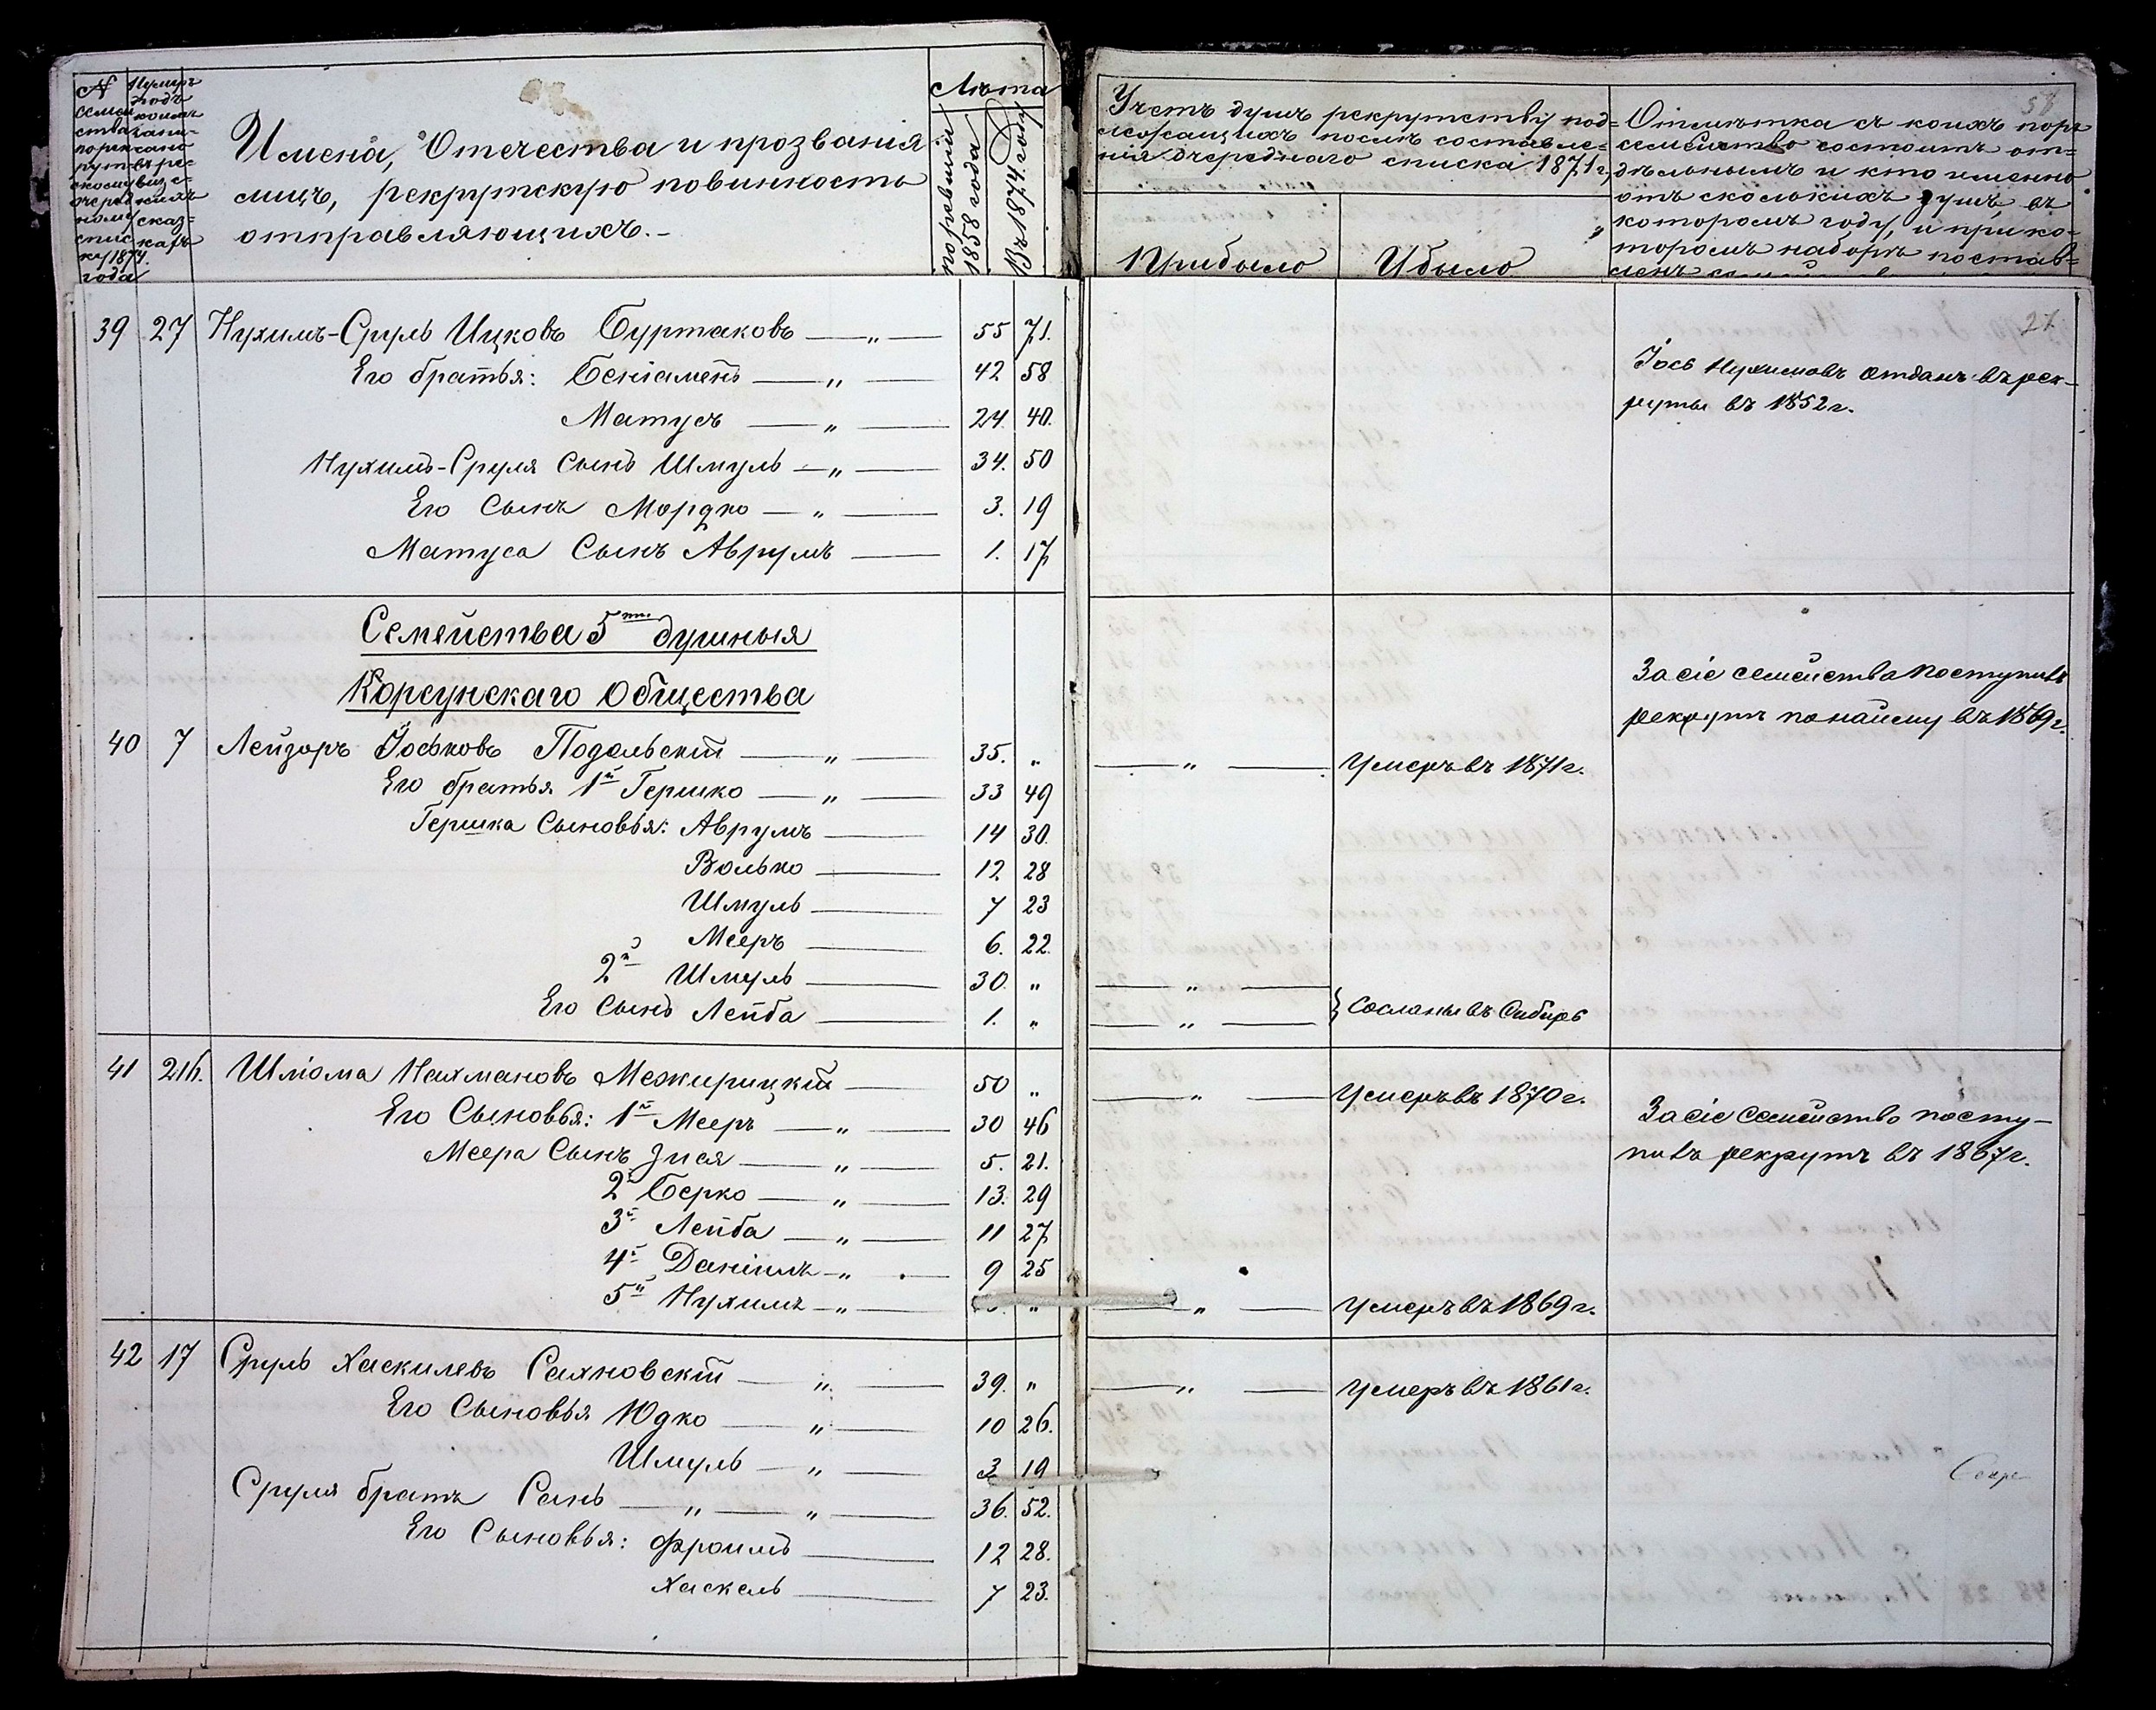 № семейства по рекрутскому очередному списку 1874. года
Нумеръ подъ коимъ записано въ ревизскихъ сказкахъ
Имена, Отечества и прозванія
лицъ, рекрутскую повинность
отправляющихъ.-
Лѣта
по ревизіи 1858 года
Въ 1874 году
Учетъ душъ рекрутству под=
лежащихъ послѣ составле=
нія очереднаго списка 1871 г,
Прибыло
Убыло
58
Отмѣтка съ коихъ поръ
семейство состоитъ от=
дѣльнымъ и кто именно
отъ сколькихъ душъ, въ
которомъ году, и при ко=
торомъ наборѣ постав=
27
39 27 Нухимъ-Сруль Ицковъ Буртаковъ — „ — 55 71.
Его братья: Беніаменъ — „ — 42 58
Іось Нухимовъ отданъ въ рек-
руты въ 1852 г.
Матусъ — „ — 24. 40.
Нухимъ-Сруля Сынъ Шмуль — „ — 34. 50
Его Сынъ Мордко — „ — 3. 19
Матуса Сынъ Аврумъ — 1. 17
Семейства 5ти душныя
Корсунскаго Общества
За сіе семейства поступилъ
рекрутъ по найму въ 1869 г.
40 7 Лейзоръ Йоськовъ Подольскій — „ — 35. „ — „ — Умеръ въ 1871 г.
Его братья 1й Гершко — „ — 33 49
Гершка Сыновья: Аврумъ — 14 30.
Волько — 12 28
Шмуль — 7 23
Мееръ — 6. 22.
2й Шмуль — 30. „ — „ —
Его Сынъ Лейба — 1. „ — „ — } Сосланы въ Сибирь
41 216. Шліома Нахмановъ Межирицкій — 50 „ — „ — Умеръ въ 1870 г.
Его Сыновья: 1й Мееръ — „ — 30 46
За сіе Семейство посту-
пилъ рекрутъ въ 1867 г.
Меера Сынъ Зися — „ — 5. 21.
2й Берко — „ — 13. 29
3й Лейба — „ — 11 27
4й Даніилъ — „ — 9 25
5й Нухимъ — „ — „ — „ — Умеръ въ 1869 г.
42 17 Сруль Хаскилевъ Сахновскій — „ — 39. „ — „ — Умеръ въ 1861 г.
Его Сыновья Юдко — „ — 10 26.
Шмуль — „ — 3 19
Сруля братъ Сань — „ — „ — 36. 52.
Его Сыновья: Фроимъ — 12 28.
Хаскель — 7 23.